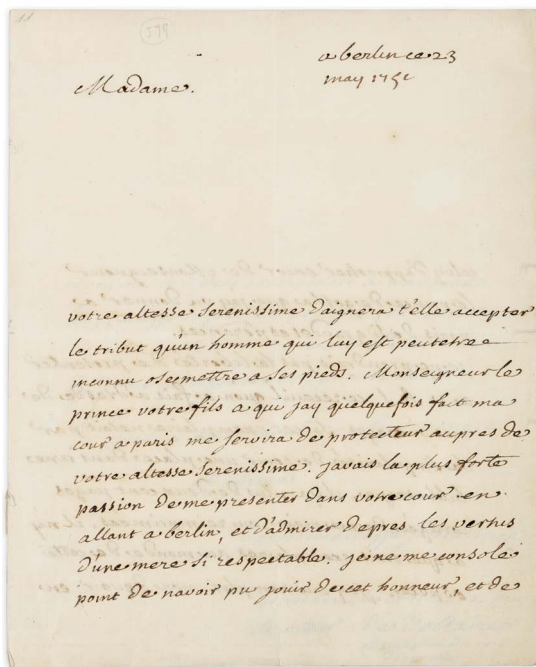 11
577
a berlin ce 23
may 1751
Madame.
votre altesse serenissime daignera t'elle accepter
le tribut qu'un homme qui luy est peutetre
inconnu ose mettre a ses pieds. Monseigneur le
prince votre fils a qui jay quelquefois fait ma
cour a paris me servira de protecteur aupres de
votre altesse serenissime. javais la plus forte
passion de me presenter dans votre cour en
allant a berlin, et d'admirer de pres les vertus
d'une mere si respectable. je ne me console
point de navoir pu jouir de cet honneur, et de